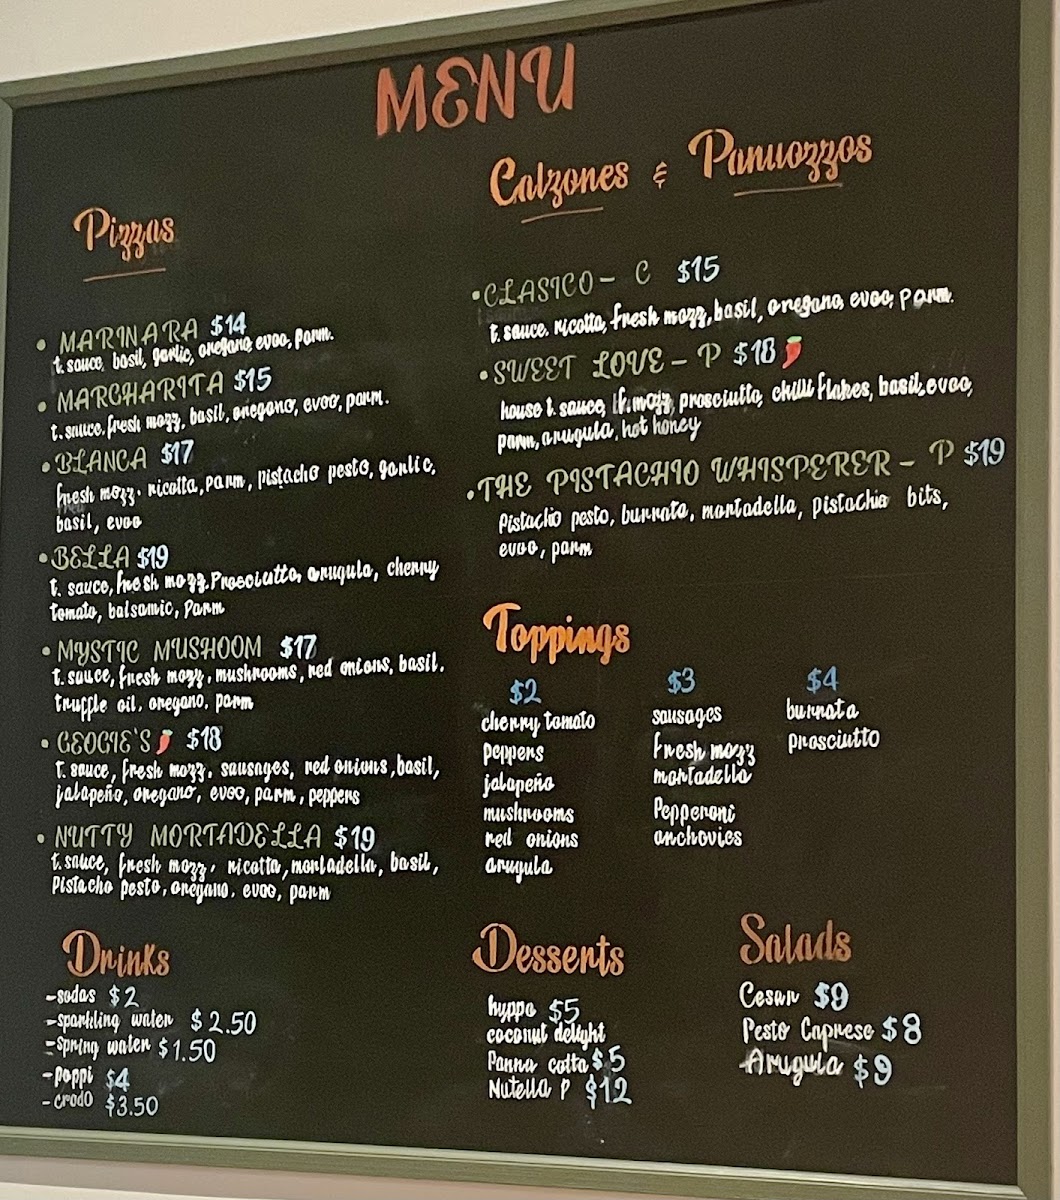 MENU
Pizzas
• MARINARA $14
t. sauce, basil, garlic, oregano, evoo, parm.
• MARGHARITA $15
t. sauce, fresh mozz, basil, oregano, evoo, parm.
• BLANCA $17
fresh mozz. ricotta, parm, pistachio pesto, garlic,
basil, evoo
• BELLA $19
t. sauce, fresh mozz. Prosciutto, arugula, cherry
tomato, balsamic, Parm
• MYSTIC MUSHOOM $17
t. sauce, fresh mozz, mushrooms, red onions, basil,
truffle oil, oregano, parm
• GEOGIE'S $18
t. sauce, fresh mozz, sausages, red onions, basil,
jalapeño, oregano, evoo, parm, peppers
• NUTTY MORTADELLA $19
t. sauce, fresh mozz, ricotta, mortadella, basil,
Pistacho pesto, oregano, evoo, parm
Calzones & Panuozzos
• CLASICO - C $15
t. sauce. ricotta, fresh mozz, basil, oregano, evoo, parm.
• SWEET LOVE - P $18
house t. sauce, f. mozz, prosciutto, chilli flakes, basil, evoo,
parm, arugula, hot honey
• THE PISTACHIO WHISPERER - P $19
Pistachio pesto, burrata, mortadella, pistachio bits,
evoo, parm
Toppings
$2
cherry tomato
peppers
jalapeño
mushrooms
red onions
arugula
$3
sausages
Fresh mozz
mortadella
Pepperoni
anchovies
$4
burrata
prosciutto
Drinks
-sodas $2
-sparkling water $2.50
-spring water $1.50
-poppi $4
-crodo $3.50
Desserts
hyppo $5
coconut delight
Panna cotta $5
Nutella P $12
Salads
Cesar $9
Pesto Caprese $8
Arugula $9